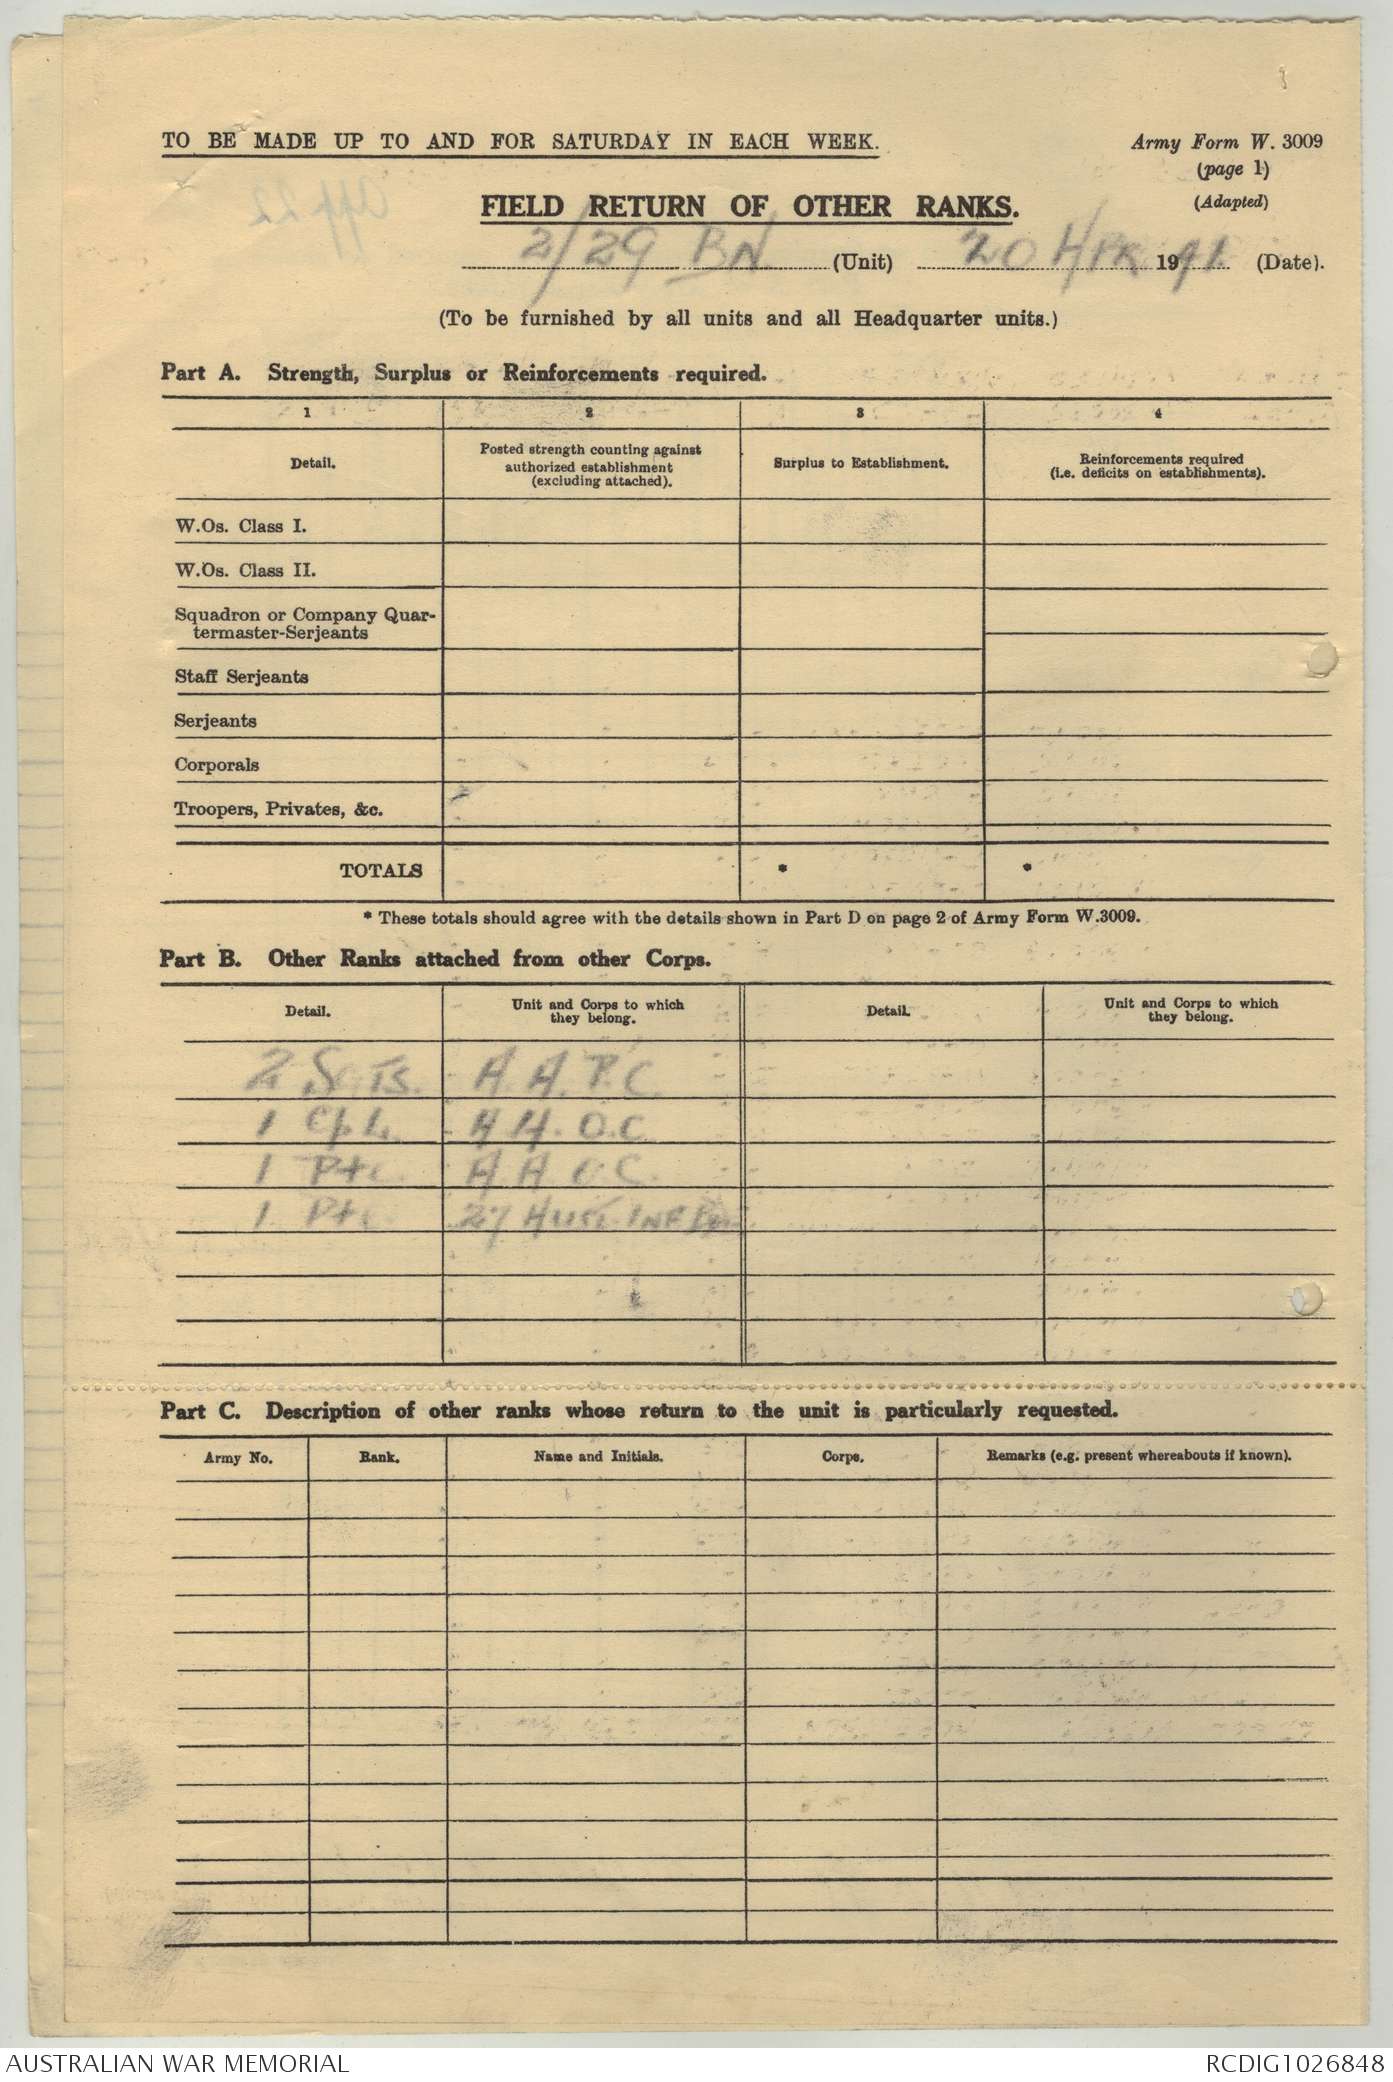 TO BE MADE UP TO AND FOR SATURDAY IN EACH WEEK.
Army Form W. 3009
(page 1)
(Adapted)
App 22
FIELD RETURN OF OTHER RANKS.
2/29 BN. (Unit) 20 APR 1941. (Date).
(To be furnished by all units and all Headquarter units.)
Part A. Strength, Surplus or Reinforcements required.
1 2 3 4
Detail. Posted strength counting against authorized establishment (excluding attached). Surplus to Establishment. Reinforcements required (i.e. deficits on establishments).
W.Os. Class I.
W.Os. Class II.
Squadron or Company Quar-
termaster-Serjeants
Staff Serjeants
Serjeants
Corporals
Troopers, Privates, &c.
TOTALS * *
* These totals should agree with the details shown in Part D on page 2 of Army Form W.3009.
Part B. Other Ranks attached from other Corps.
Detail. Unit and Corps to which they belong. Detail. Unit and Corps to which they belong.
2 Sgts. A.A.P.C.
1 Cpl. A A.O.C.
1 Pte. A A O C.
1 Pte. 27 Aust Inf Bde
Part C. Description of other ranks whose return to the unit is particularly requested.
Army No. Rank. Name and Initials. Corps. Remarks (e.g. present whereabouts if known).
AUSTRALIAN WAR MEMORIAL
RCDIG1026848